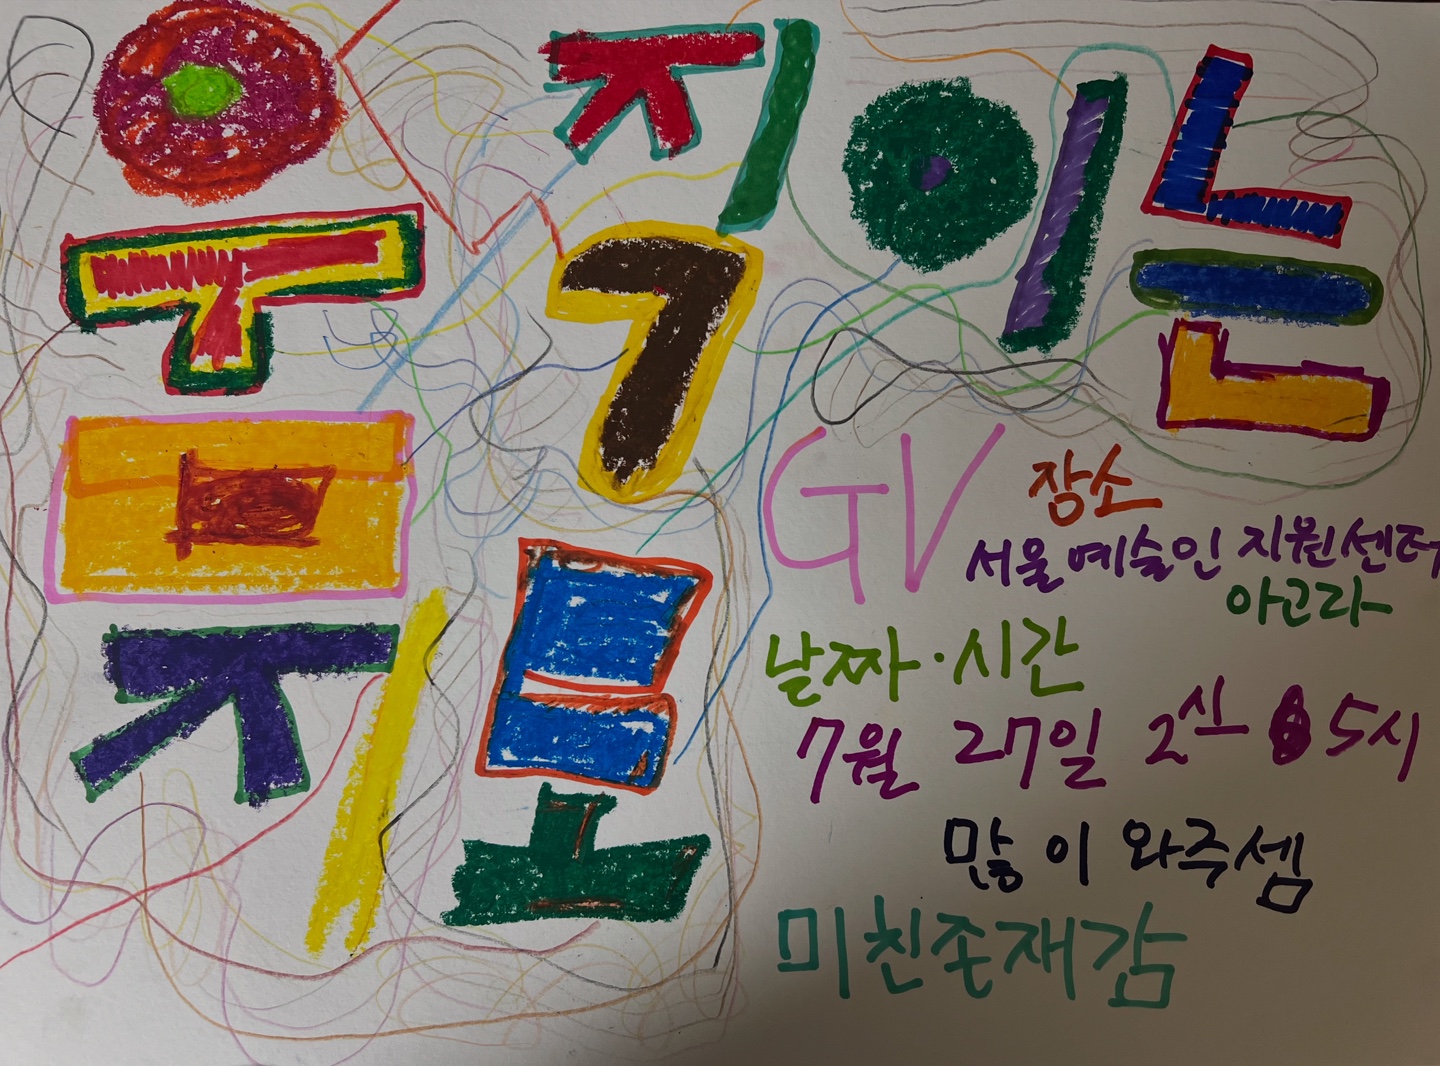 움직이는
지도
GV
장소
서울예술인 지원센터
아고라
날짜·시간
7월 27일 2시 5시
많이 와주셈
미친존재감